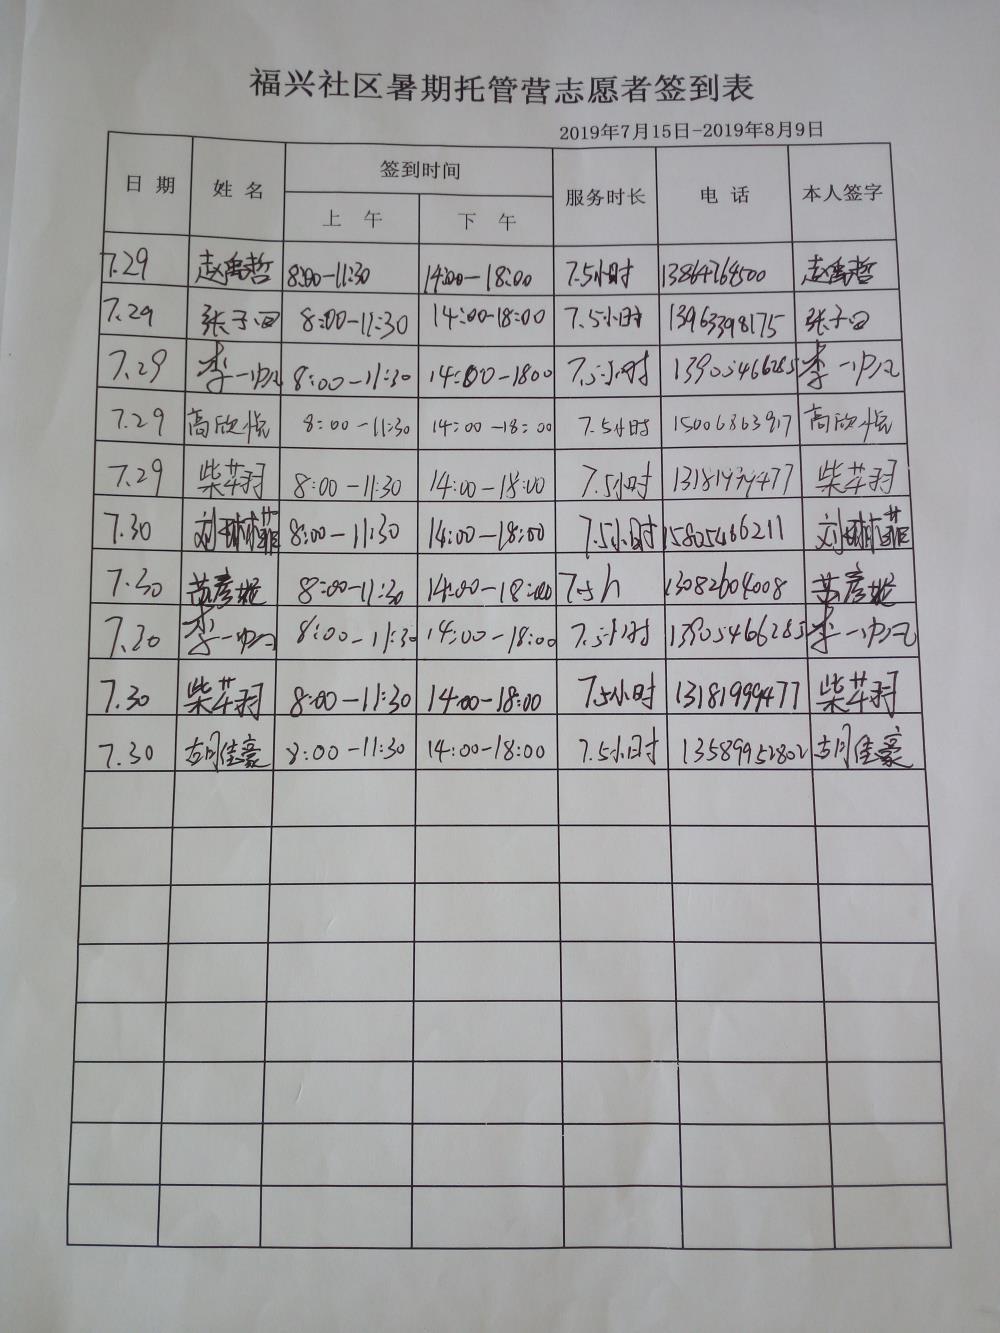 福兴社区暑期托管营志愿者签到表
2019年7月15日-2019年8月9日
日 期 姓 名 签到时间 服务时长 电 话 本人签字
上 午 下 午
7.29 赵禹哲 8:00-11:30 14:00-18:00 7.5小时 13864764500 赵禹哲
7.29 张子曰 8:00-11:30 14:00-18:00 7.5小时 13963398175 张子曰
7.29 李一 8:00-11:30 14:00-1800 7.5小时 13905466285 李一
7.29 高欣悦 8:00-11:30 14:00-18:00 7.5小时 15006863917 高欣悦
7.29 柴芊羽 8:00-11:30 14:00-18:00 7.5小时 13181999477 柴芊羽
7.30 刘琳菲 8:00-11:30 14:00-18:00 7.5小时 15805466211 刘琳菲
7.30 苗彦妮 8:00-11:30 14:00-18:00 7.5h 13082604008 苗彦妮
7.30 李一 8:00-11:30 14:00-18:00 7.5小时 13905466285 李一
7.30 柴芊羽 8:00-11:30 14:00-18:00 7.5小时 13181999477 柴芊羽
7.30 胡佳豪 8:00-11:30 14:00-18:00 7.5小时 13589952802 胡佳豪